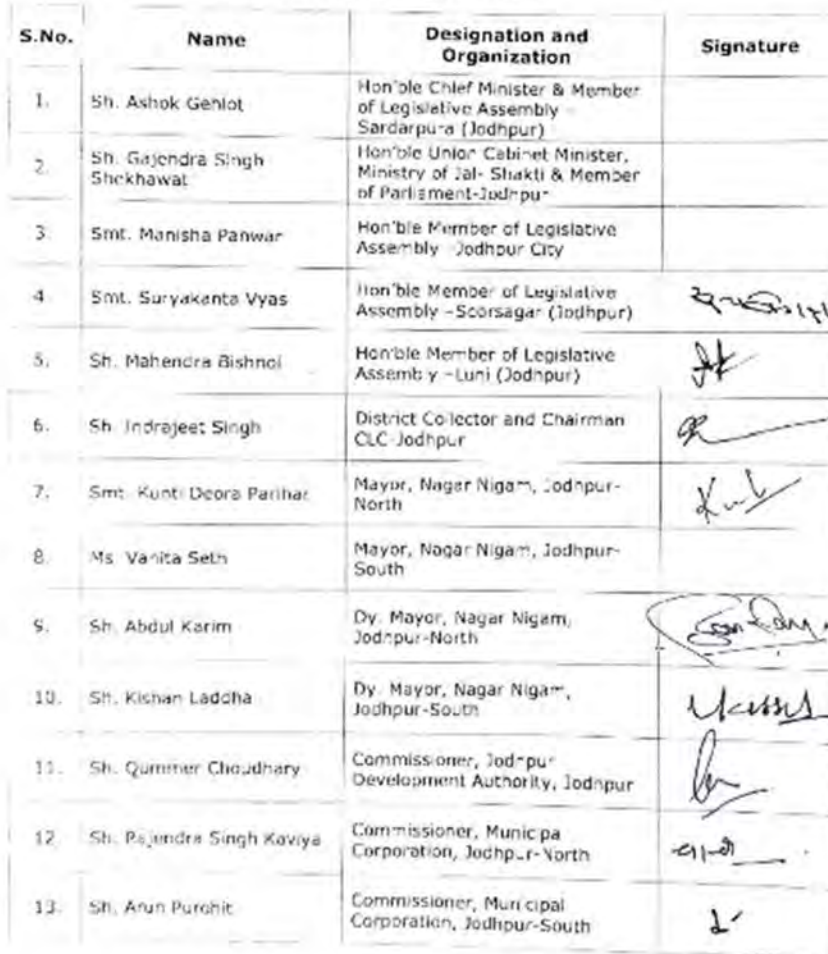 S.No. Name Designation and Organization Signature
1. Sh. Ashok Gehlot Hon'ble Chief Minister & Member
of Legislative Assembly
Sardarpura (Jodhpur)
2. Sh. Gajendra Singh Shekhawat Hon'ble Union Cabinet Minister,
Ministry of Jal- Shakti & Member
of Parliament-Jodhpur
3. Smt. Manisha Panwar Hon'ble Member of Legislative
Assembly -Jodhpur City
4. Smt. Suryakanta Vyas Hon'ble Member of Legislative
Assembly -Soorsagar (Jodhpur)
5. Sh. Mahendra Bishnoi Hon'ble Member of Legislative
Assembly -Luni (Jodhpur)
6. Sh. Indrajeet Singh District Collector and Chairman
CLC-Jodhpur
7. Smt. Kunti Deora Parihar Mayor, Nagar Nigam, Jodhpur-
North
8. Ms. Vanita Seth Mayor, Nagar Nigam, Jodhpur-
South
9. Sh. Abdul Karim Dy. Mayor, Nagar Nigam,
Jodhpur-North
10. Sh. Kishan Laddha Dy. Mayor, Nagar Nigam,
Jodhpur-South
11. Sh. Qummer Choudhary Commissioner, Jodhpur
Development Authority, Jodhpur
12. Sh. Rajendra Singh Kaviya Commissioner, Municipal
Corporation, Jodhpur-North
13. Sh. Arun Purohit Commissioner, Municipal
Corporation, Jodhpur-South